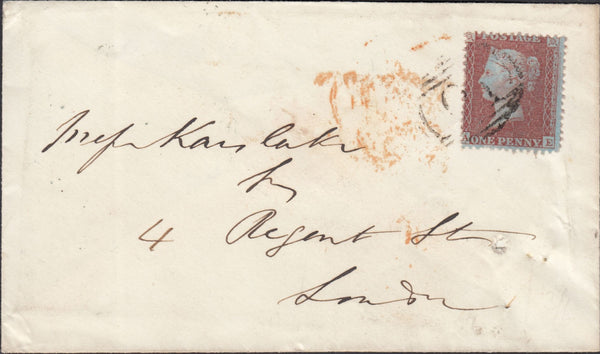 POSTAGE
A ONE PENNY E
Messrs Karslake
4 Regent St
London